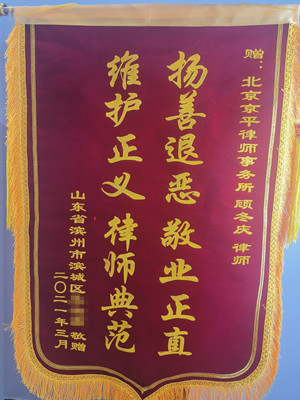 赠：北京京平律师事务所 顾冬庆 律师
扬善退恶 敬业正直
维护正义 律师典范
山东省滨州市滨城区 敬赠
二〇二一年三月